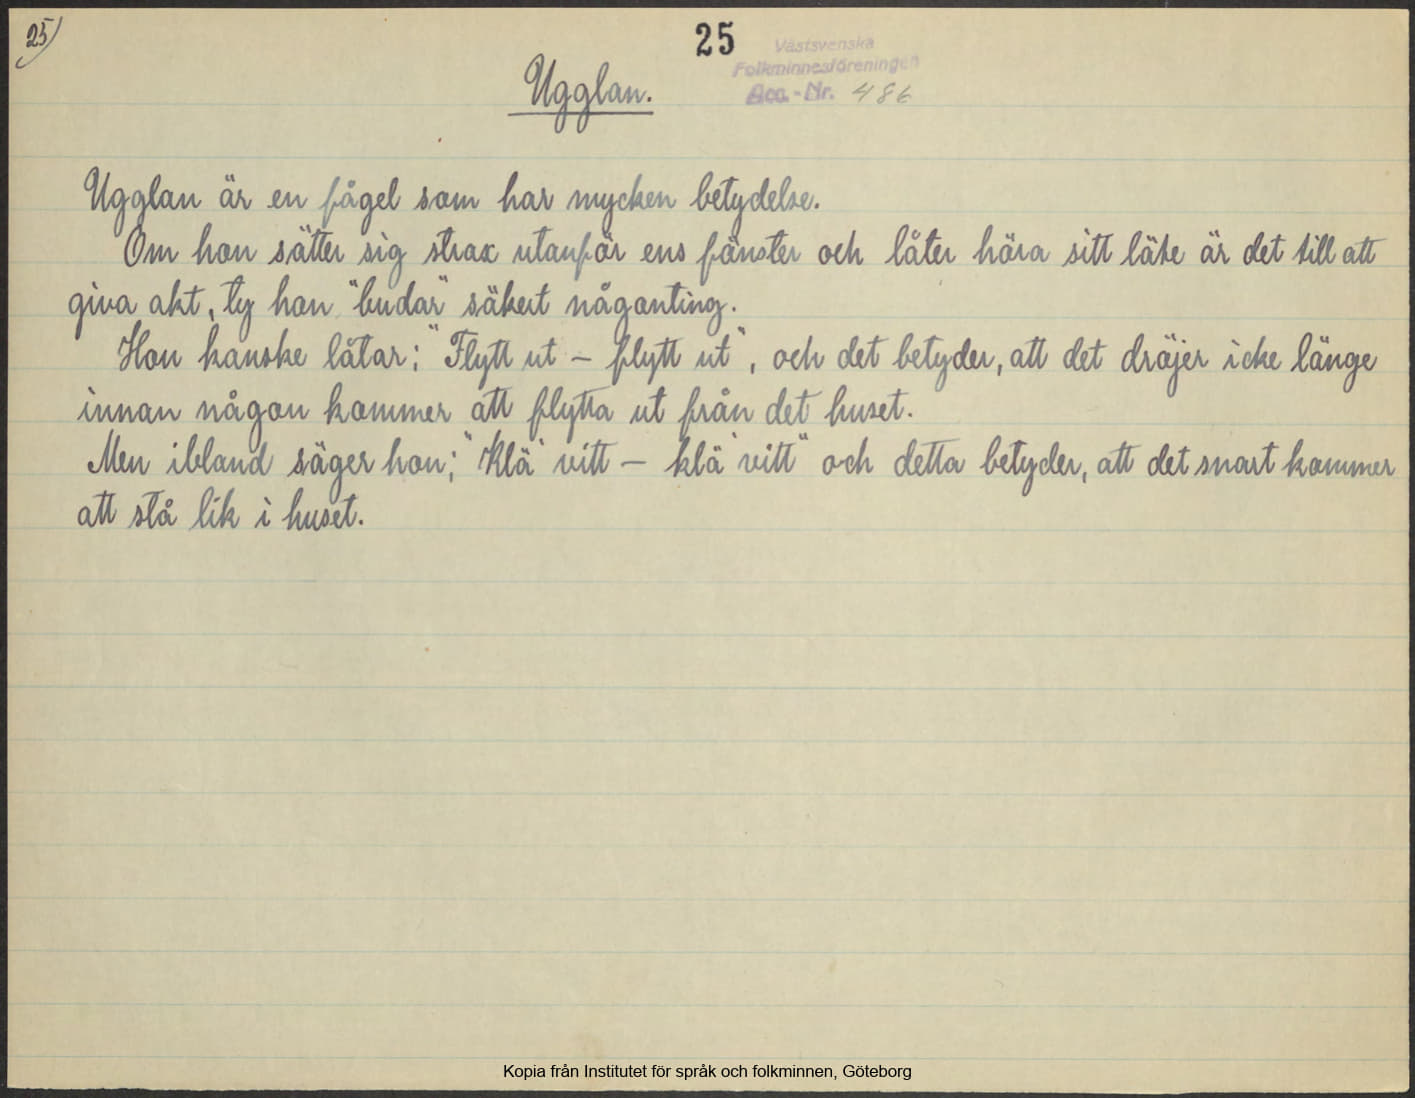 25)
25
Västsvenska
Folkminnesföreningen
Acc.-Nr. 486
Ugglan.
Ugglan är en fågel som har mycken betydelse.
Om hon sätter sig strax utanför ens fönster och låter höra sitt läte är det till att
giva akt, ty hon "budar" säkert någonting.
Hon kanske låtar; "Flytt ut – flytt ut", och det betyder, att det dröjer icke länge
innan någon kommer att flytta ut från det huset.
Men ibland säger hon; "Klä' vitt – klä' vitt" och detta betyder, att det snart kommer
att stå lik i huset.
Kopia från Institutet för språk och folkminnen, Göteborg